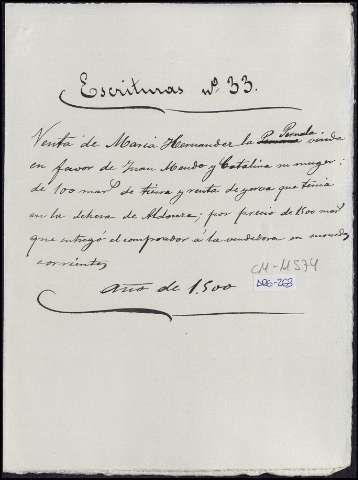 Escrituras nº 33.
Venta de Maria Hernandez la Pernala viuda
en favor de Juan Mendo y Catalina su muger:
de 100 mars de tierra y renta de yerva que tenia
en la dehesa de Aldonza; por precio de 1500 mars
que entregó el comprador á la vendedora en monedas
corrientes
CM-M574
D06-263
año de 1.500